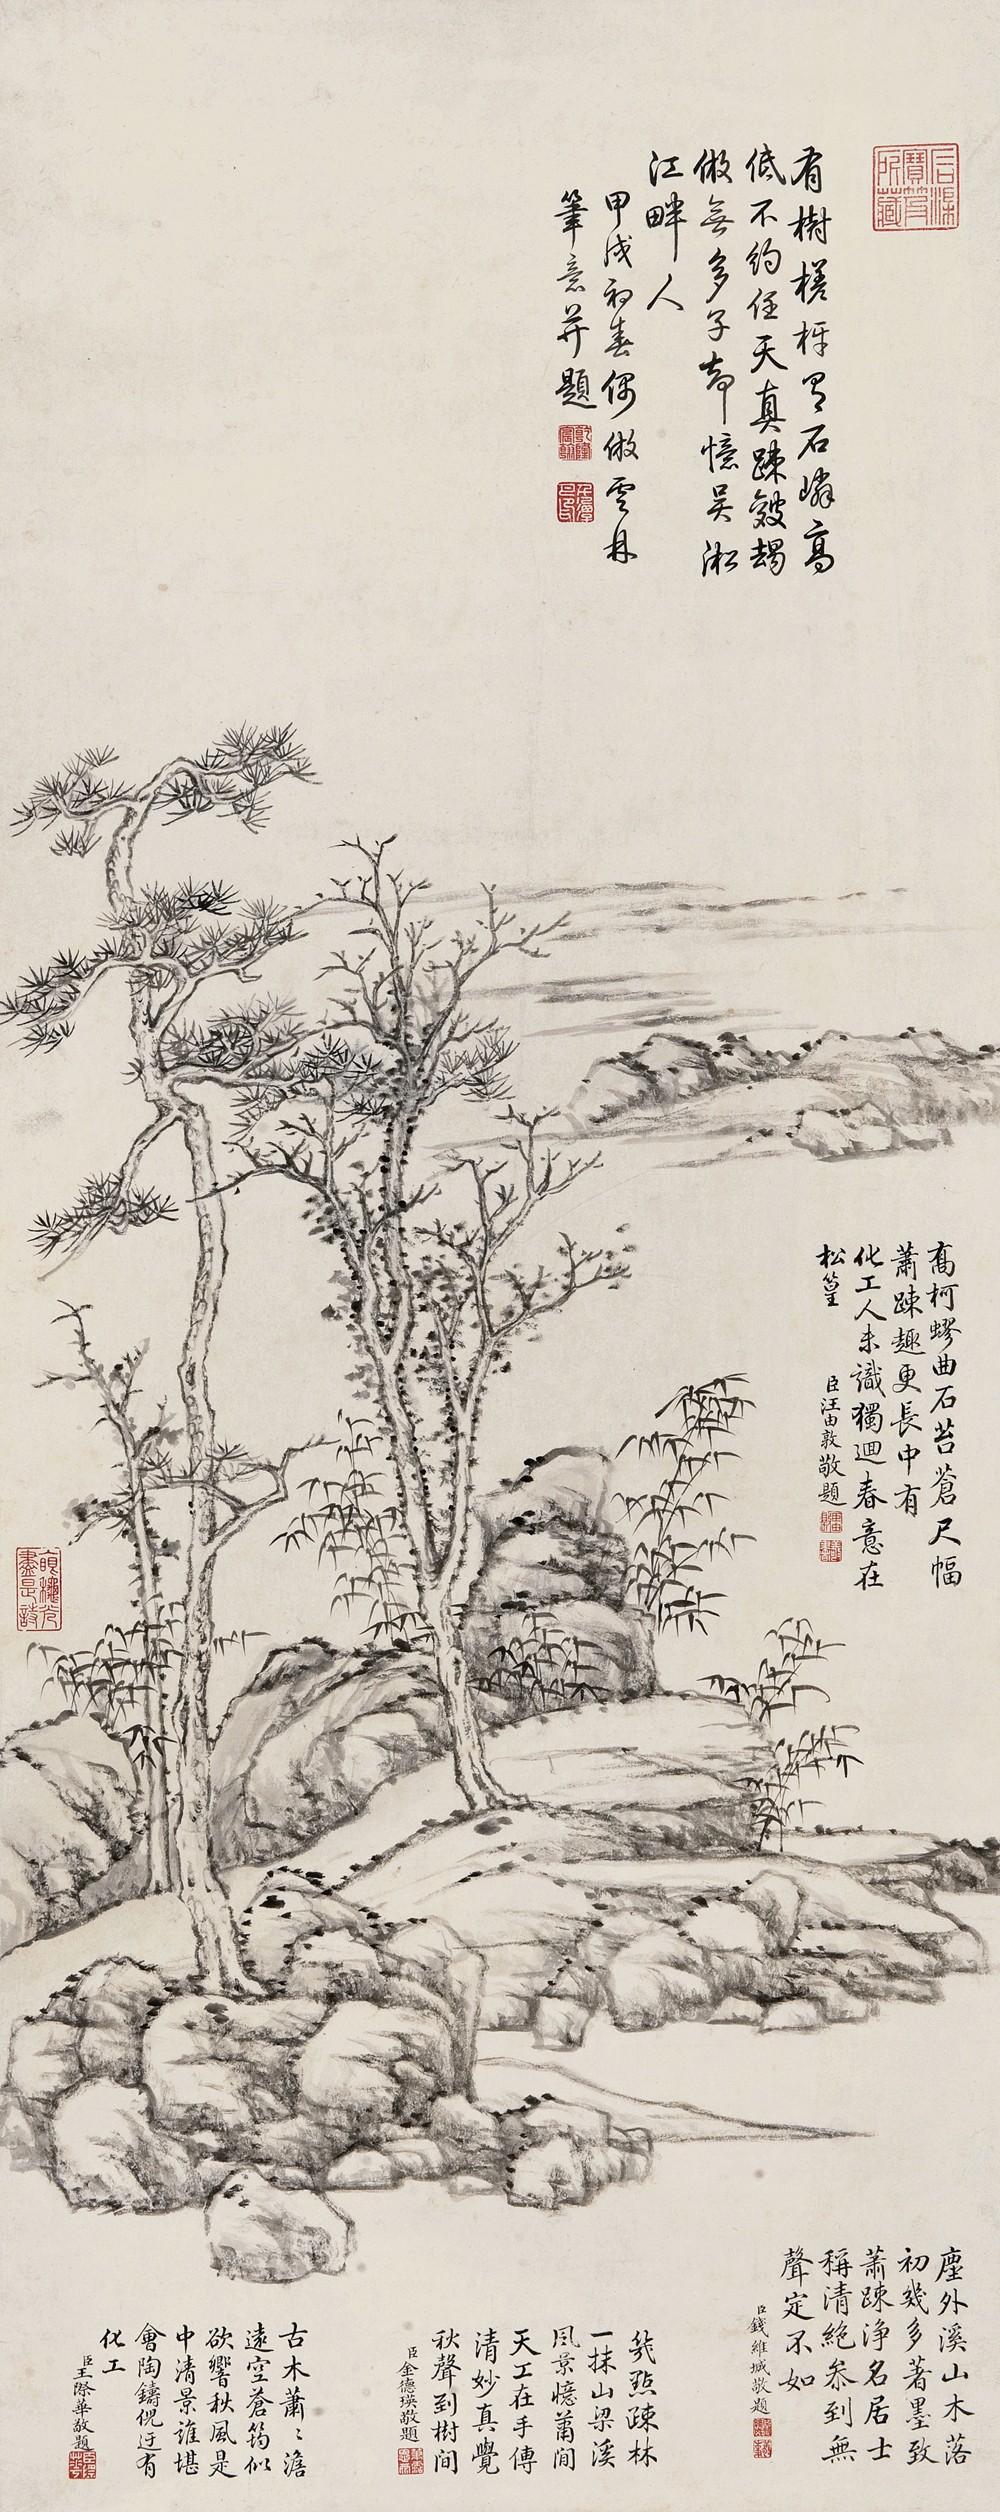 有樹槎枒
石嶙高
低不約任天真疎
倣無多子却憶吳淞
江畔人
甲戌初春偶倣雲林
筆意并題
喬柯蟉曲石苔蒼尺幅
蕭踈趣更長中有
化工人未識獨迴春意在
松篁
臣汪由敦敬題
塵外溪山木落
初幾多著墨致
蕭踈淨名居士
稱清絶叅到無
聲定不如
臣錢維城敬題
幾點踈林
一抹山梁溪
風景憶蕭閒
天工在手傳
清妙真覺
秋聲到樹間
臣金德瑛敬題
古木蕭〻澹
遠空蒼筠似
欲響秋風是
中清景誰堪
會陶鑄倪迂有
化工
臣王際華敬題